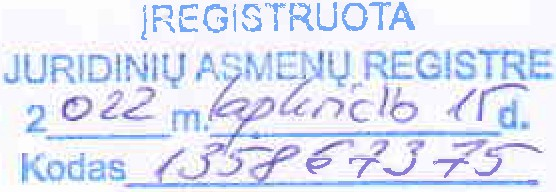 ĮREGISTRUOTA
JURIDINIŲ ASMENŲ REGISTRE
2022 m. lapkričio 15 d.
Kodas 135867375